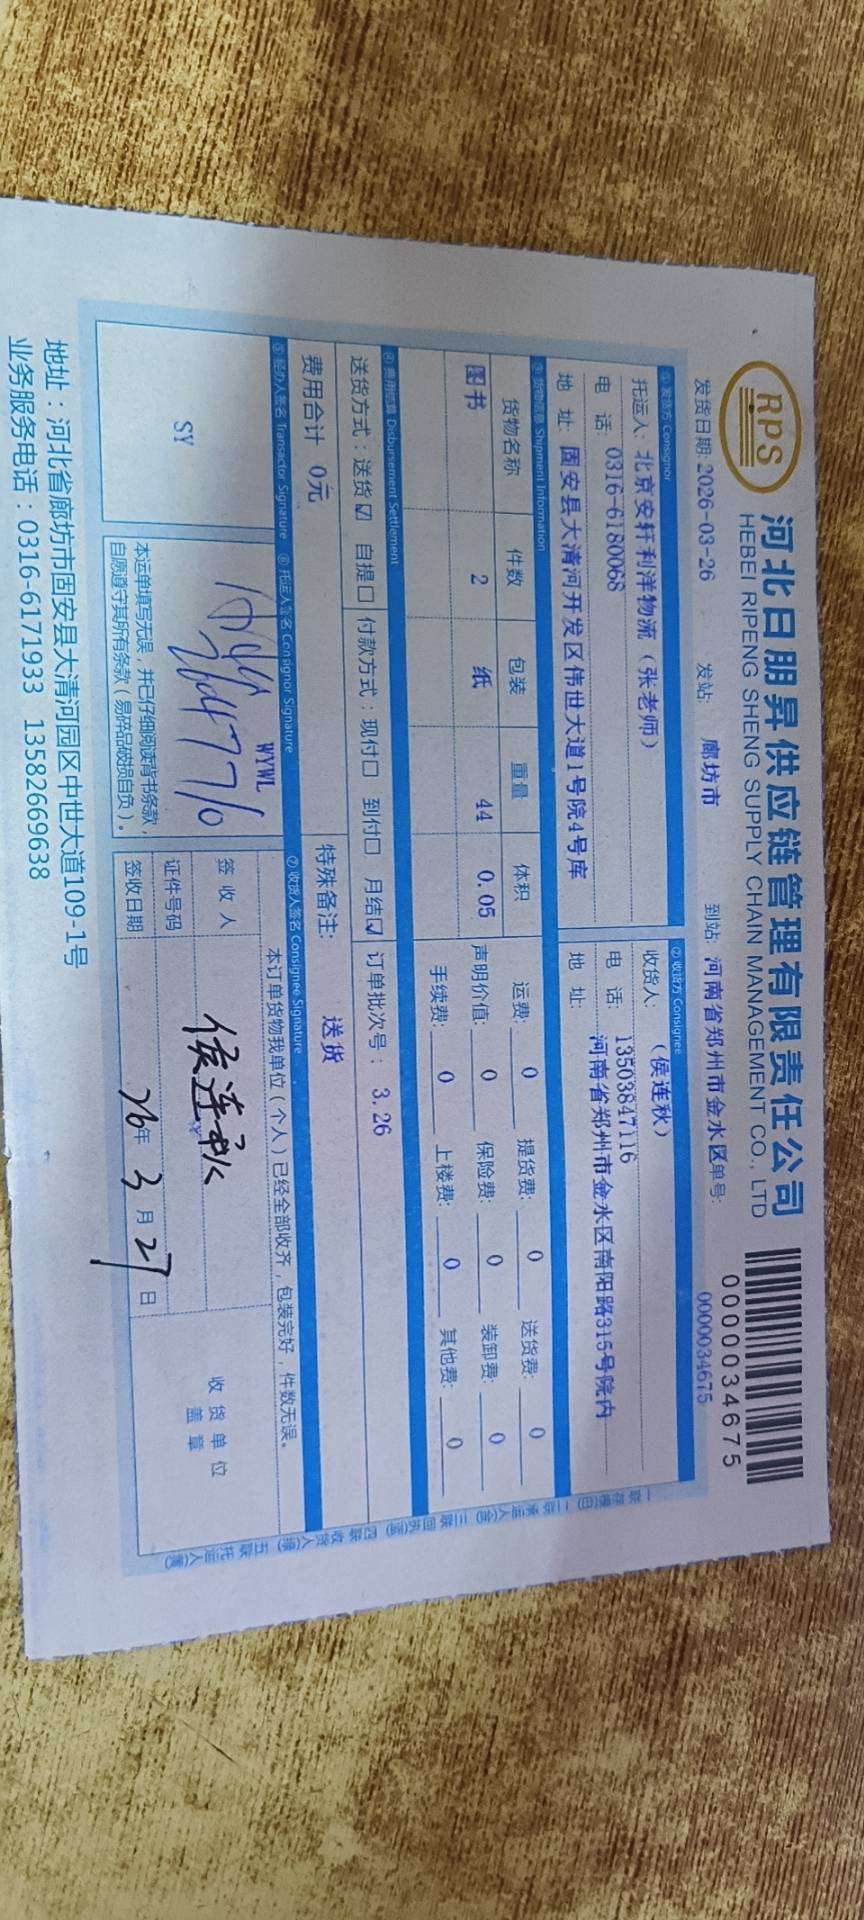 RPS
河北日朋昇供应链管理有限责任公司
HEBEI RIPENG SHENG SUPPLY CHAIN MANAGEMENT CO., LTD
0000034675
发货日期: 2026-03-26 发站: 廊坊市 到站: 河南省郑州市金水区 单号: 0000034675
① 发货方 Consignor
托运人: 北京安轩利洋物流（张老师）
电 话: 0316-6180068
地 址: 固安县大清河开发区伟世大道1号院4号库
② 收货方 Consignee
收货人: （侯连秋）
电 话: 13503847116
地 址: 河南省郑州市金水区南阳路315号院内
③ 货物信息 Shipment Information
货物名称 件数 包装 重量 体积
图书 2 纸 44 0.05
运费: 0 提货费: 0 送货费: 0
声明价值: 0 保险费: 0 装卸费: 0
手续费: 0 上楼费: 0 其他费: 0
④ 费用结算 Disbursement Settlement
送货方式：送货☑ 自提□ 付款方式：现付□ 到付□ 月结☑ 订单批次号： 3.26
费用合计 0元 特殊备注: 送货
⑤ 经办人签名 Transactor Signature
SY
⑥ 托运人签名 Consignor Signature
WYWL
本运单填写无误，并已仔细阅读背书条款，
自愿遵守其所有条款（易碎品破损自负）。
⑦ 收货人签名 Consignee Signature
本订单货物我单位（个人）已经全部收齐，包装完好，件数无误。
签 收 人 侯连秋
证件号码
签收日期 26年 3月 27日
收 货 单 位
盖 章
地址：河北省廊坊市固安县大清河园区中世大道109-1号
业务服务电话：0316-6171933 13582669638